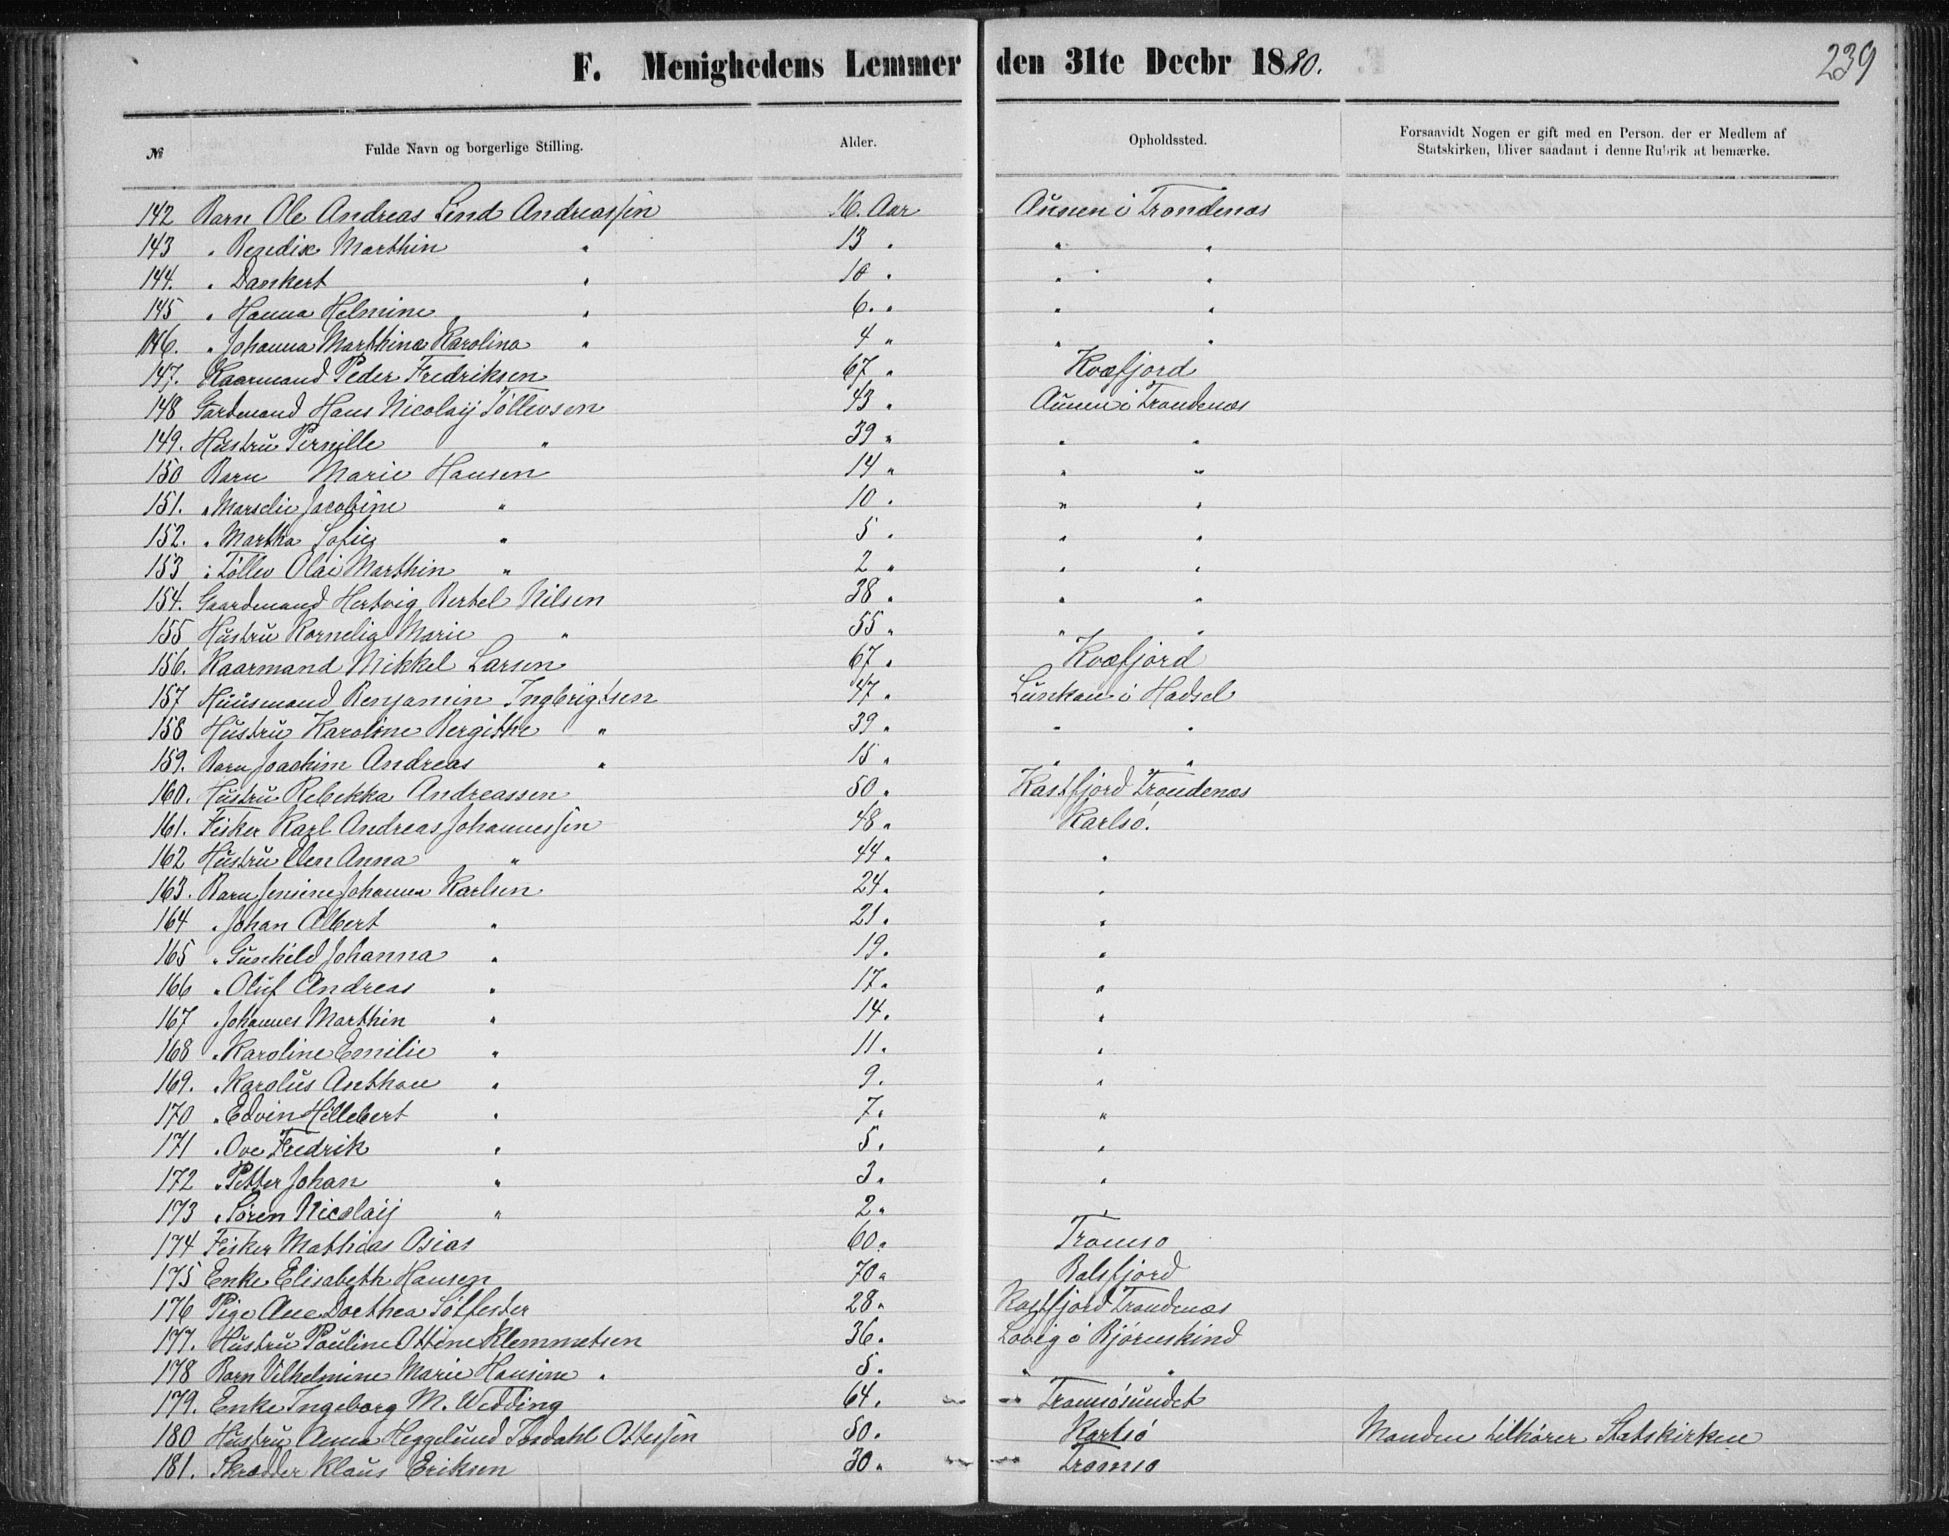 F. Menighedens Lemmer den 31te Decbr 1880. 239
№ Fulde Navn og borgerlige Stilling. Alder. Opholdssted. Forsaavidt Nogen er gift med en Person, der er Medlem af
Statskirken, bliver saadant i denne Rubrik at bemærke.
142 Barn Ole Andreas Lind Andreassen 16. Aar Aunen i Trondenæs
143 " Benedix Marthin " 13 " " "
144. " Dankert " 10 " " "
145 " Hanna Helmine " 6. " " "
146. " Johanna Marthina Karolina " 4 " " "
147. Kaarmand Peder Fredriksen 67 " Kvæfjord
148 Gardmand Hans Nicolaij Tøllevsen 43 " Aunen i Trondenæs
149. Hustru Pernille " 39 " " "
150 Barn Marie Hansen 14 " " "
151. " Marselie Jacobine " 10 " " "
152. " Martha Sofie " 5 " " "
153 " Tøllev Olai Marthin " 2 " " "
154. Gaardmand Hertvig Bertel Nilsen 38 " " "
155 Hustru Kornelia Marie " 55 " " "
156. Kaarmand Mikkel Larsen 67 " Kvæfjord
157 Huusmand Benjamin Ingbrigtsen 47 " Lunkan i Hadsel
158 Hustru Karoline Bergitthe " 39 " " "
159. Barn Joachim Andreas " 15 " " "
160. Hustru Rebekka Andreassen 50 " Kastfjord Trondenæs
161. Fisker Karl Andreas Johannessen 48 " Karlsø.
162 Hustru Elen Anna " 44 " "
163. Barn Jensine Johanna Karlsen 24 " "
164 " Johan Albert " 21 " "
165 " Gunhild Johanna " 19 " "
166 " Oluf Andreas " 17 " "
167 " Johannes Marthin " 14 " "
168 " Karoline Emilie " 11 " "
169. " Karolus Anthon " 9 " "
170 " Edvin Hillebert " 7 " "
171 " Ove Fredrik " 5 " "
172 " Petter Johan " 3 " "
173 " Søren Nicolaij " 2 " "
174 Fisker Mathias Osias 60 " Tromsø
175 Enke Elisabeth Hansen 70 " Balsfjord
176 Pige Ane Dorthea Sølfester 28 " Kastfjord Trondenæs
177. Hustru Pauline Ottine Klemmetsen 36 " Lovig i Bjørnskind
178 Barn Vilhelmine Marie Hansine " 5 " " "
179. Enke Ingeborg M. Wedding 64 " Tromsøsundet
180 Hustru Anna Heggelund Tosdahl Ottessen 50 " Karlsø Manden tilhører Statskirken
181. Skrædder Klaus Eriksen 30 " Tromsø